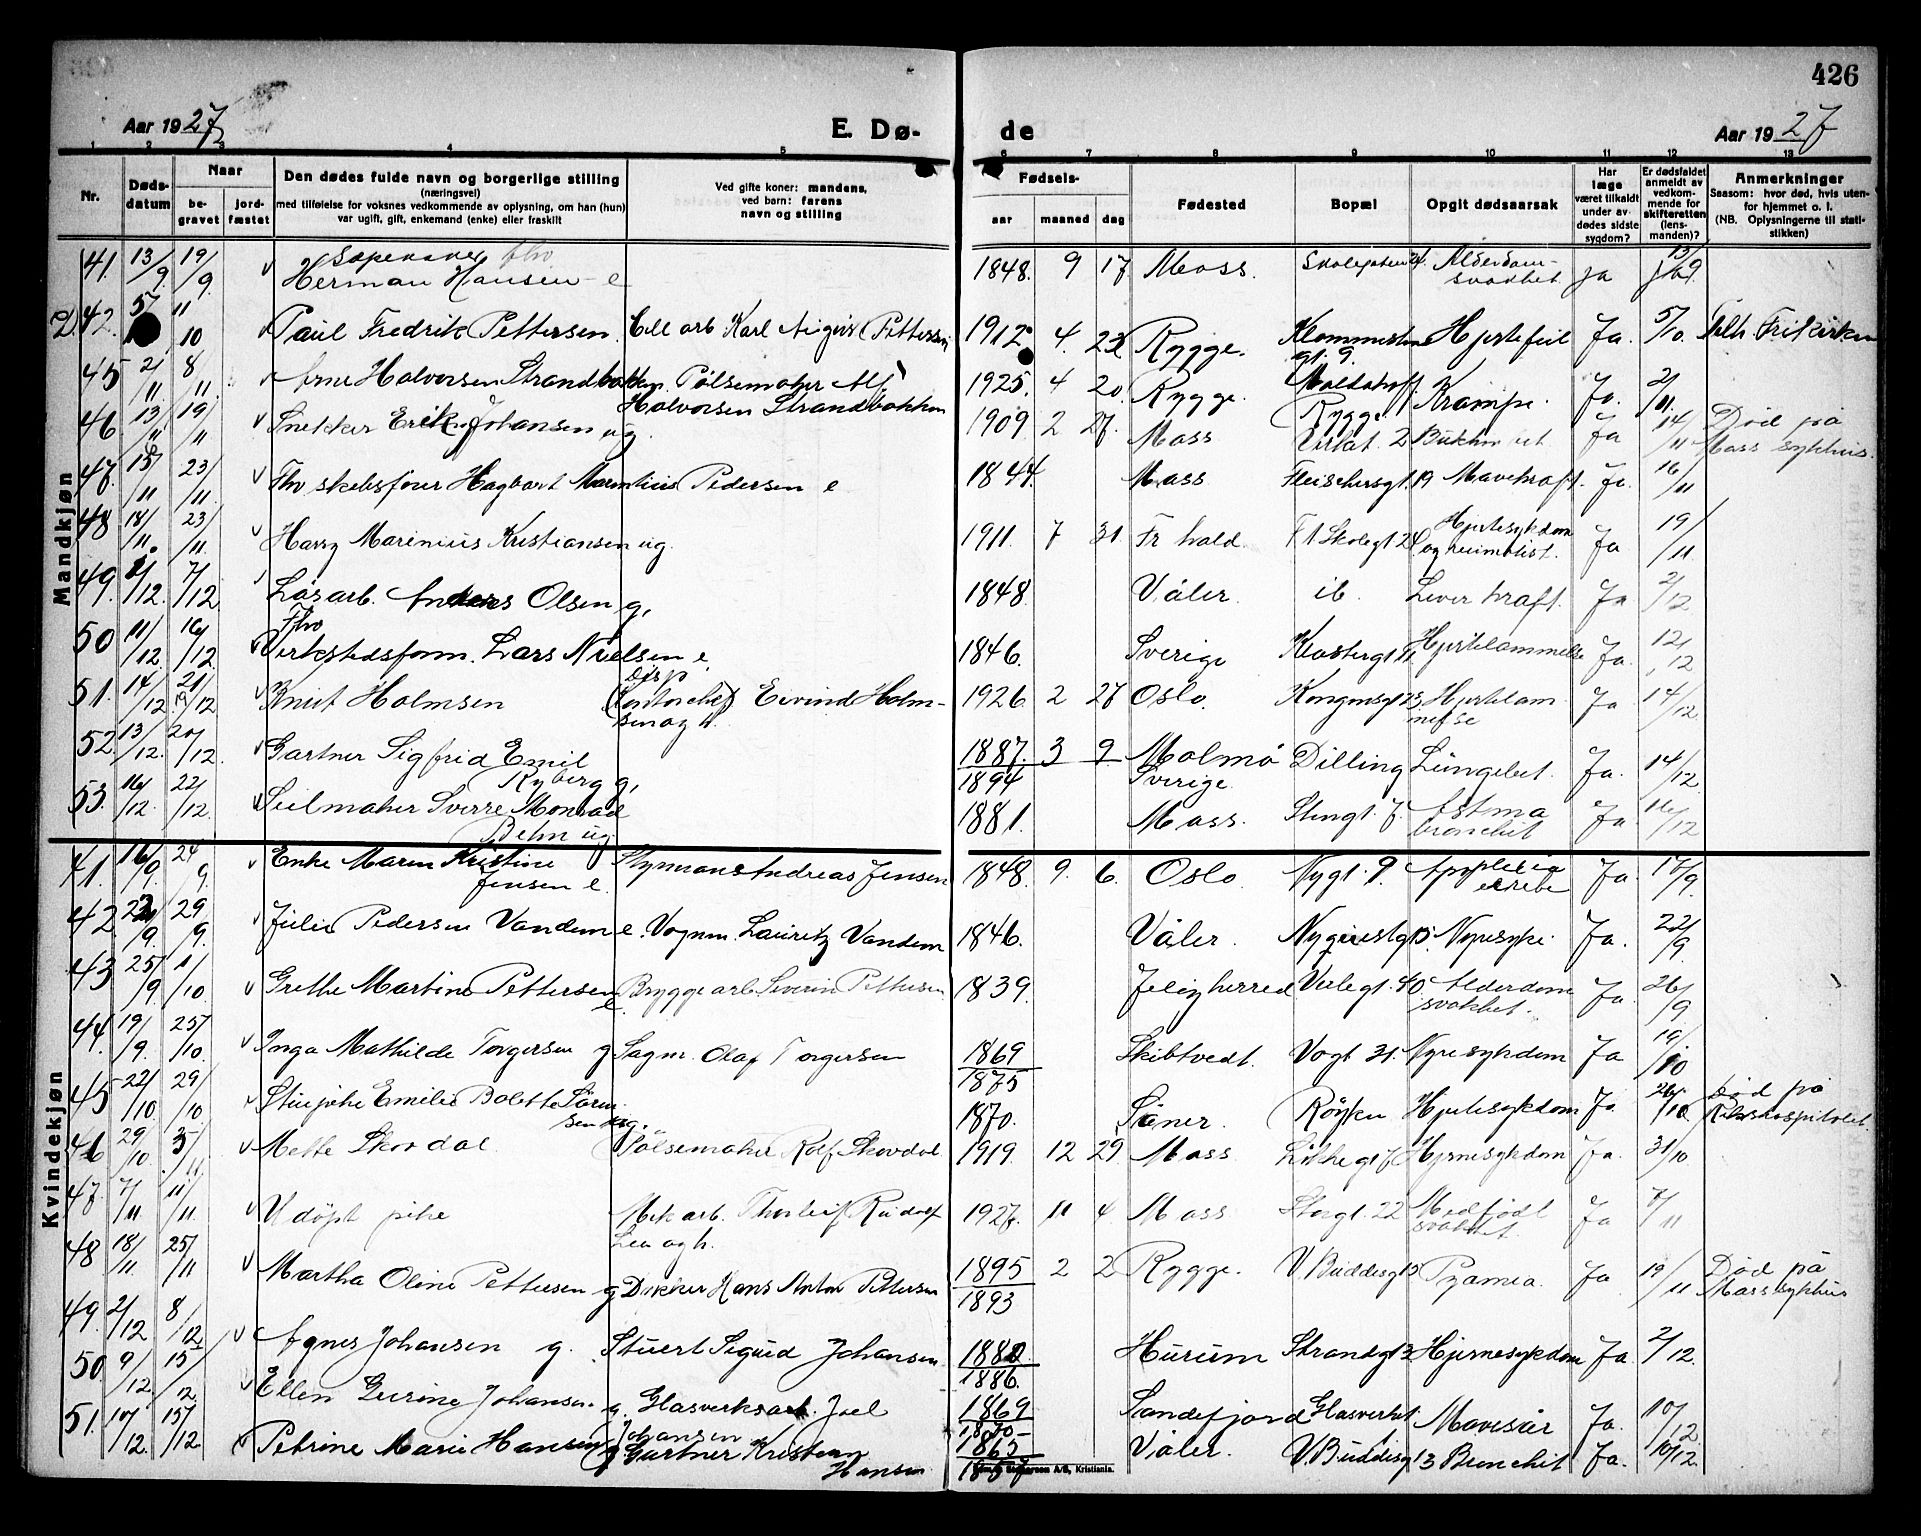 426
Aar 1927
E. Dø-
de
Aar 1927
1 2 3 4 5 6 7 8 9 10 11 12 13
Nr.
Døds-
datum
Naar
be-
gravet
jord-
fæstet
Den dødes fulde navn og borgerlige stilling
(næringsvei)
med tilføielse for voksnes vedkommende av oplysning, om han (hun)
var ugift, gift, enkemand (enke) eller fraskilt
Ved gifte koner: mandens,
ved barn: farens
navn og stilling
Fødsels-
aar
maaned
dag
Fødested
Bopæl
Opgit dødsaarsak
Har
læge
været tilkaldt
under av-
dødes sidste
sygdom?
Er dødsfaldet
anmeldt av
vedkom-
mende for
skifteretten
(lens-
manden)?
Anmerkninger
Saasom: hvor død, hvis uten-
for hjemmet o. l.
(NB. Oplysningerne til stati-
stikken)
Mandkjøn
41. 13/9 19/9 Herman Hansen e 1848. 9 17. Moss. Alderdoms-
svakhet ja 13/9
42. 11/10 Paul Fredrik Pettersen. Cell arb Karl August Pettersen 1912 4. 23 Rygge. gt. 9. Hjertefeil Ja. 5/10 Frikirken
45 2/11 8/11 Arne Halvorsen Strandbakken. Pølsemaker Alf
Halvorsen Strandbakken 1925. 4 20. Rygge. Rygge. Krampe. Ja. 2/11
46 13/11 19/11 Snekker Erik Johansen ug. 1909 2 27. Moss Ja 14/11 Død på
Moss sykhus.
47. 15/11 23/11 Fhv skibsfører Hagbart Martinius Pedersen e 1844. Moss Fleischersgt. 19 Mavekraft. Ja. 16/11
48 18/11 23/11 Harry Marinius Kristiansen ug. 1911. 7 31. Fr hald. Skolegt 2 Hjertesykdom
og reumatist. Ja 19/11
49. 2/12. 7/12 Løsarb. Anders Olsen g. 1848. Våler. ib. Lever kraft. Ja 2/12
50 11/12. 16/12 Fhv
Verkstedsform. Lars Nielsen e. 1846. Sverige Klostergt. Hjertelammelse Ja. 12/12
51. 14/12 21/12 Knut Holmsen disp
(Kontorchef) Eivind Holm-
sen og h. 1926. 2 27 Oslo. Kongensgt Hjertelam-
melse Ja 14/12
52. 13/12. 20/12 Gartner Sigfrid Emil
Ryberg g. 1887. 3 9. Malmø
1894 Sverige. Dilling Lungebet. Ja. 14/12.
53. 16/12. 22/12 Seilmaker Sverre Monrad
Behn ug. 1881. Moss. Stengt. 7. Astma
bronchit Ja 16/12
Kvindekjøn
41. 16/9. 24/9. Enke Maren Kristine
Jensen e. Styrmann Andreas Jensen 1848. 9. 6. Oslo. Nygt. 9. Ja. 17/9.
42. 22/9. 29/9. Julie Pedersen Vandem e. Vognm. Lauritz Vandem 1846. Våler. Nyresyke. Ja. 22/9.
43 25/9 11/10 Grethe Martine Pettersen e. Bryggearb Severin Pettersen 1839. Jeløy herred Vielegt. 40 Alderdoms
svakhet. Ja. 26/9
44. 19/9. 25/10. Inga Mathilde Torgersen g Sagm. Olaf Torgersen 1869
1875 Skibtvedt. Vogt 31. Nyresykdom Ja 19/10
45 22/10 29/10 Emilie Bolette Søren-
sen ug. 1870. Såner. Røyken Hjertesykdom Ja 26/10 Død på
Rikshospitalet.
46 29/10. 5/11 Mette Skovdal Pølsemaker Rolf Skovdal 1919. 12 29. Moss Hjernesykdom Ja. 31/10
47. 7/11. 11/11. Udøpt pike Mek arb. Thorleif Rudolf
Lea og h. 1927. 11 4. Moss Storgt. 22 Medfødt
svakhet. Ja 7/11
48 18/11. 25/11 Martha Oline Pettersen g Dækker Hans Anton Pettersen 1895 2 2
1893 Rygge. V. Buddesgt 5 Pyamia. Ja 19/11 Død på
Moss sykhus
49. 2/12 8/12 Agnes Johansen g. Stuert Sigurd Johansen. 1882.
1886. Hurum Strandgt Hjernesykdom Ja. 2/12.
50. 9/12. 15/12 Ellen Gurine Johansen. g. Glasverksarb. Joel
Johansen 1869
1870 Sandefjord Glasverket Mavesår Ja. 10/12
51. 10/12. 15/12 Petrine Marie Hansen g Gartner Kristian
Hansen 1865 Våler. V. Buddesgt 3 Bronchit Ja. 10/12.
A/S, Kristiania.